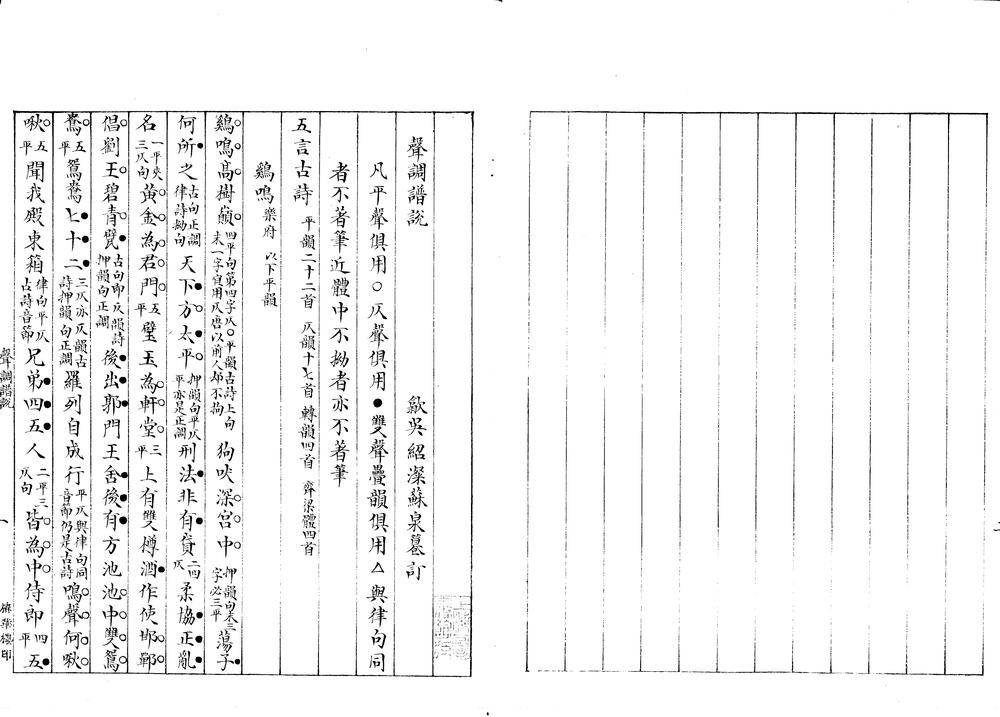 聲調譜說　歙吳紹澯蘇泉纂訂
凡平聲俱用○仄聲俱用●雙聲疊韻俱用△與律句同
者不著筆近體中不拗者亦不著筆
五言古詩　平韻二十二首　仄韻十七首　轉韻四首　齊梁體四首
鷄鳴　樂府　以下平韻
鷄鳴高樹巔四平句第四字仄○平韻古詩上句末一字宜用仄唐以前人却不拘狗吠深宮中押韻句末三字必三平蕩子
何所之古句正調律詩拗句天下方太平押韻句平仄平亦是正調刑法非有貸二四仄柔協正亂
名一平夾三仄句黃金為君門五平璧玉為軒堂三平上有雙樽酒作使邯鄲
倡劉王碧青甓古句即仄韻詩押韻句正調後出郭門王舍後有方池池中雙鴛
鴦五平鴛鴦七十二三仄亦仄韻古詩押韻句正調羅列自成行平仄與律句同音節仍是古詩鳴聲何啾
啾五平聞我殿東箱律句平仄古詩音節兄弟四五人二平三仄句皆為中侍郎四平五
聲調譜說
一